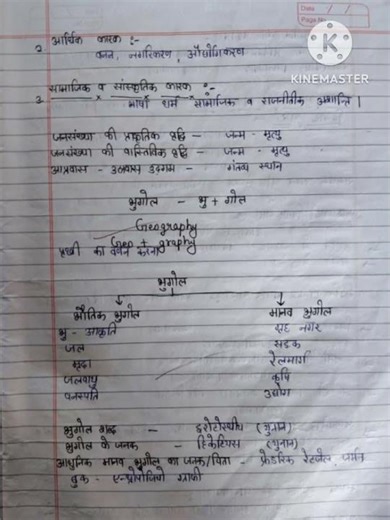 Date
Page No.
KINEMASTER
2. आर्थिक कारक :-
खनन, नगरीकरण, औद्योगिकरण
3. सामाजिक व सांस्कृतिक कारक :-
भाषा धर्म सामाजिक व राजनीतीक अशान्ति ।
जनसंख्या की प्राकृतिक वृद्धि - जन्म - मृत्यु
जनसंख्या की वास्तिविक वृद्धि - जन्म - मृत्यु
आप्रवास - उत्प्रवास उदगम - गंतव्य स्थान
भुगोल - भु + गोल
Geography
Geo + graphy
पृथ्वी का वर्णन करना
भुगोल
भौतिक भुगोल मानव भुगोल
भु - आकृति गृह नगर
जल सडक
मृदा रेलमार्ग
जलवायु कृषि
वनस्पति उद्योग
भुगोल शब्द - इरेटोस्थीज (युनान)
भुगोल के जनक - हिकेटियस (युनान)
आधुनिक मानव भुगोल का जनक/पिता - फ्रेडरिक रेटजेल जर्मन
बुक - एन्थ्रोपोजियो ग्राफी